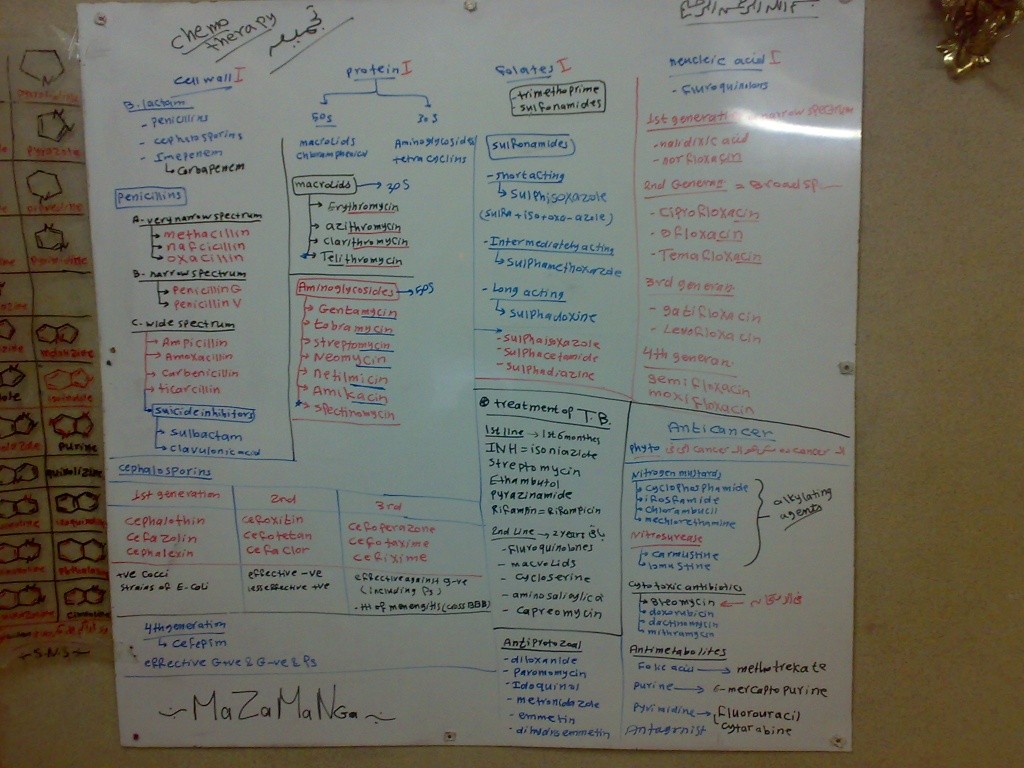 chemo
therapy
cell wall I
B. lactam
- penicillins
- cephalosporins
- Imepenem
Carbapenem
penicillins
A- very narrow spectrum
methacillin
nafcicillin
oxacillin
B- narrow spectrum
penicillin G
penicillin V
C- wide spectrum
Ampicillin
Amoxacillin
Carbenicillin
ticarcillin
suicide inhibitors
sulbactam
clavulonic acid
protein I
50s 30s
macrolids Aminoglycosides
chloramphenicol tetracyclins
macrolids → 30S
Erythromycin
azithromycin
clarithromycin
Telithromycin
Aminoglycosides
Gentamycin
tobramycin
streptomycin
Neomycin
netilmicin
Amikacin
spectinomycin
cephalosporins
1st generation 2nd 3rd
cephalothin cefoxitin cefoperazone
cefazolin cefotetan cefotaxime
cephalexin cefaclor cefixime
+ve cocci effective -ve effective against g-ve
strains of E-coli less effective +ve (including Ps)
- ttt of menengitis (coss BBB)
4th generation
cefepim
effective G+ve & G-ve & Ps
MaZaMaNGa
folates I
- trimethoprime
- sulfonamides
sulfonamides
- short acting
sulphisoxazole
(sulfa + iso + oxa - azole)
- Intermediately acting
sulphamethoxazole
- Long acting
sulphadoxine
- sulphaisoxazole
- sulphacetamide
- sulphadiazine
treatment of T.B.
1st line → 1st 6 months
INH = isoniazide
streptomycin
Ethambutol
pyrazinamide
Rifampin = Rifampicin
2nd Line → 2 years
- fluroquinolones
- macrolids
- cycloserine
- amino salicylic a
- capreomycin
Antiprotozoal
- diloxanide
- paromomycin
- Idoquinol
- metronidazole
- emmetin
- dihydroemmetin
neucleic acid I
- fluroquinolons
1st generation narrow spectrum
- nalidixic acid
- norfloxacin
2nd Generas = Broad sp
- ciprofloxacin
- ofloxacin
- Temafloxacin
3rd generas
- gatifloxacin
- Levofloxacin
4th generan
gemifloxacin
moxifloxacin
Anticancer
phyto
Nitrogen mustards
cyclophosphamide
ifosfamide
chlorambucil
mechlorethamine
alkylating
agents
Nitrosurease
carmustine
lomustine
cytotoxic antibiotics
Bleomycin
doxorubicin
dactinomycin
mithramycin
Antimetabolites
Folic acid → methotrekate
purine → 6-mercaptopurine
pyrimidine → Fluorouracil
cytarabine
Antagonist
purine
- S.N.S -